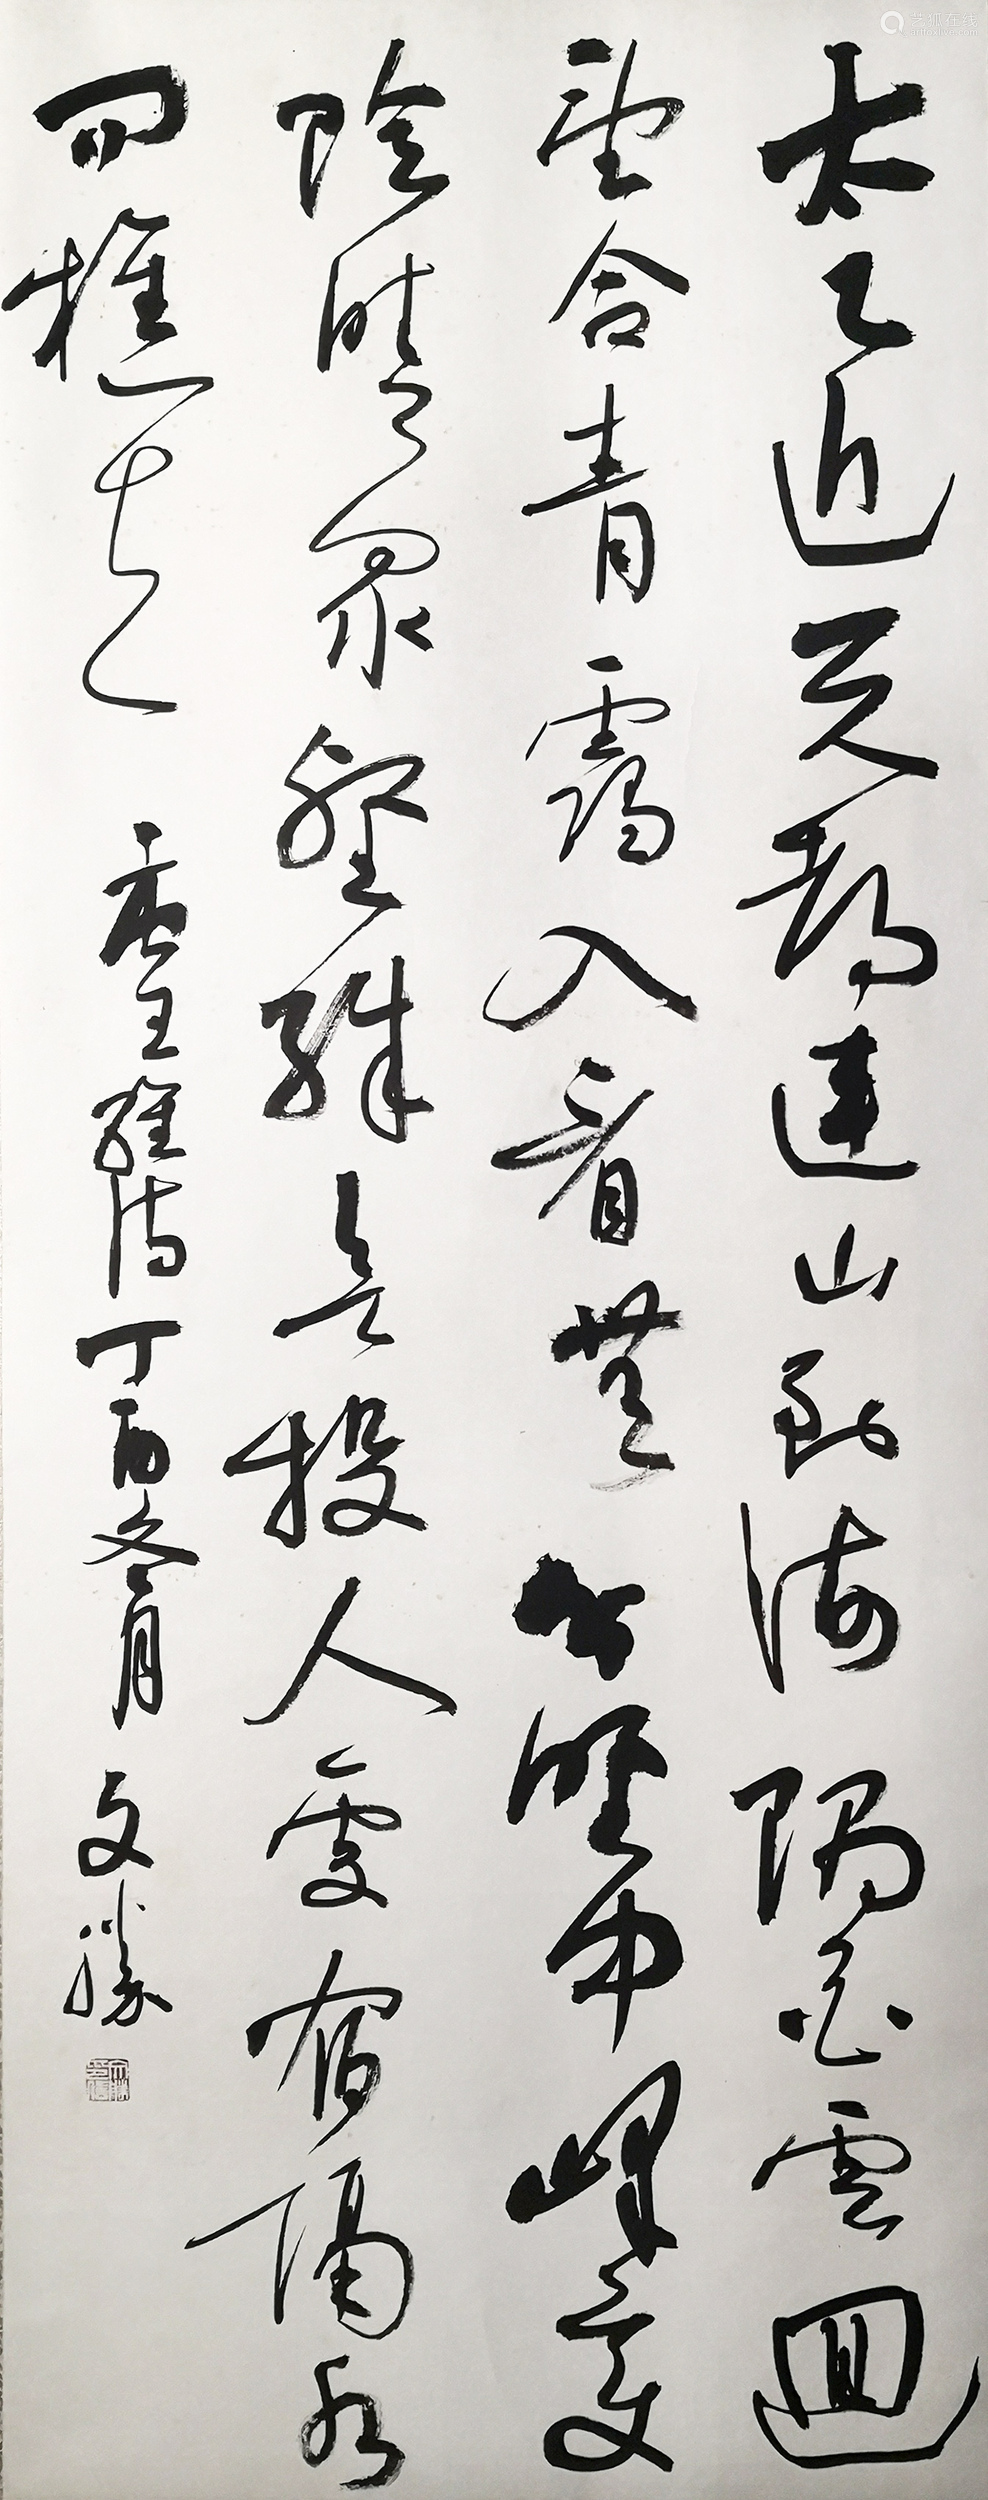 太乙近天都連山到海隅白雲迴
望合青靄入看無分野中峰變
陰晴眾壑殊欲投人處宿隔水
問樵夫 录王維詩丁酉冬月 文勝
艺狐在线
artfoxlive.com